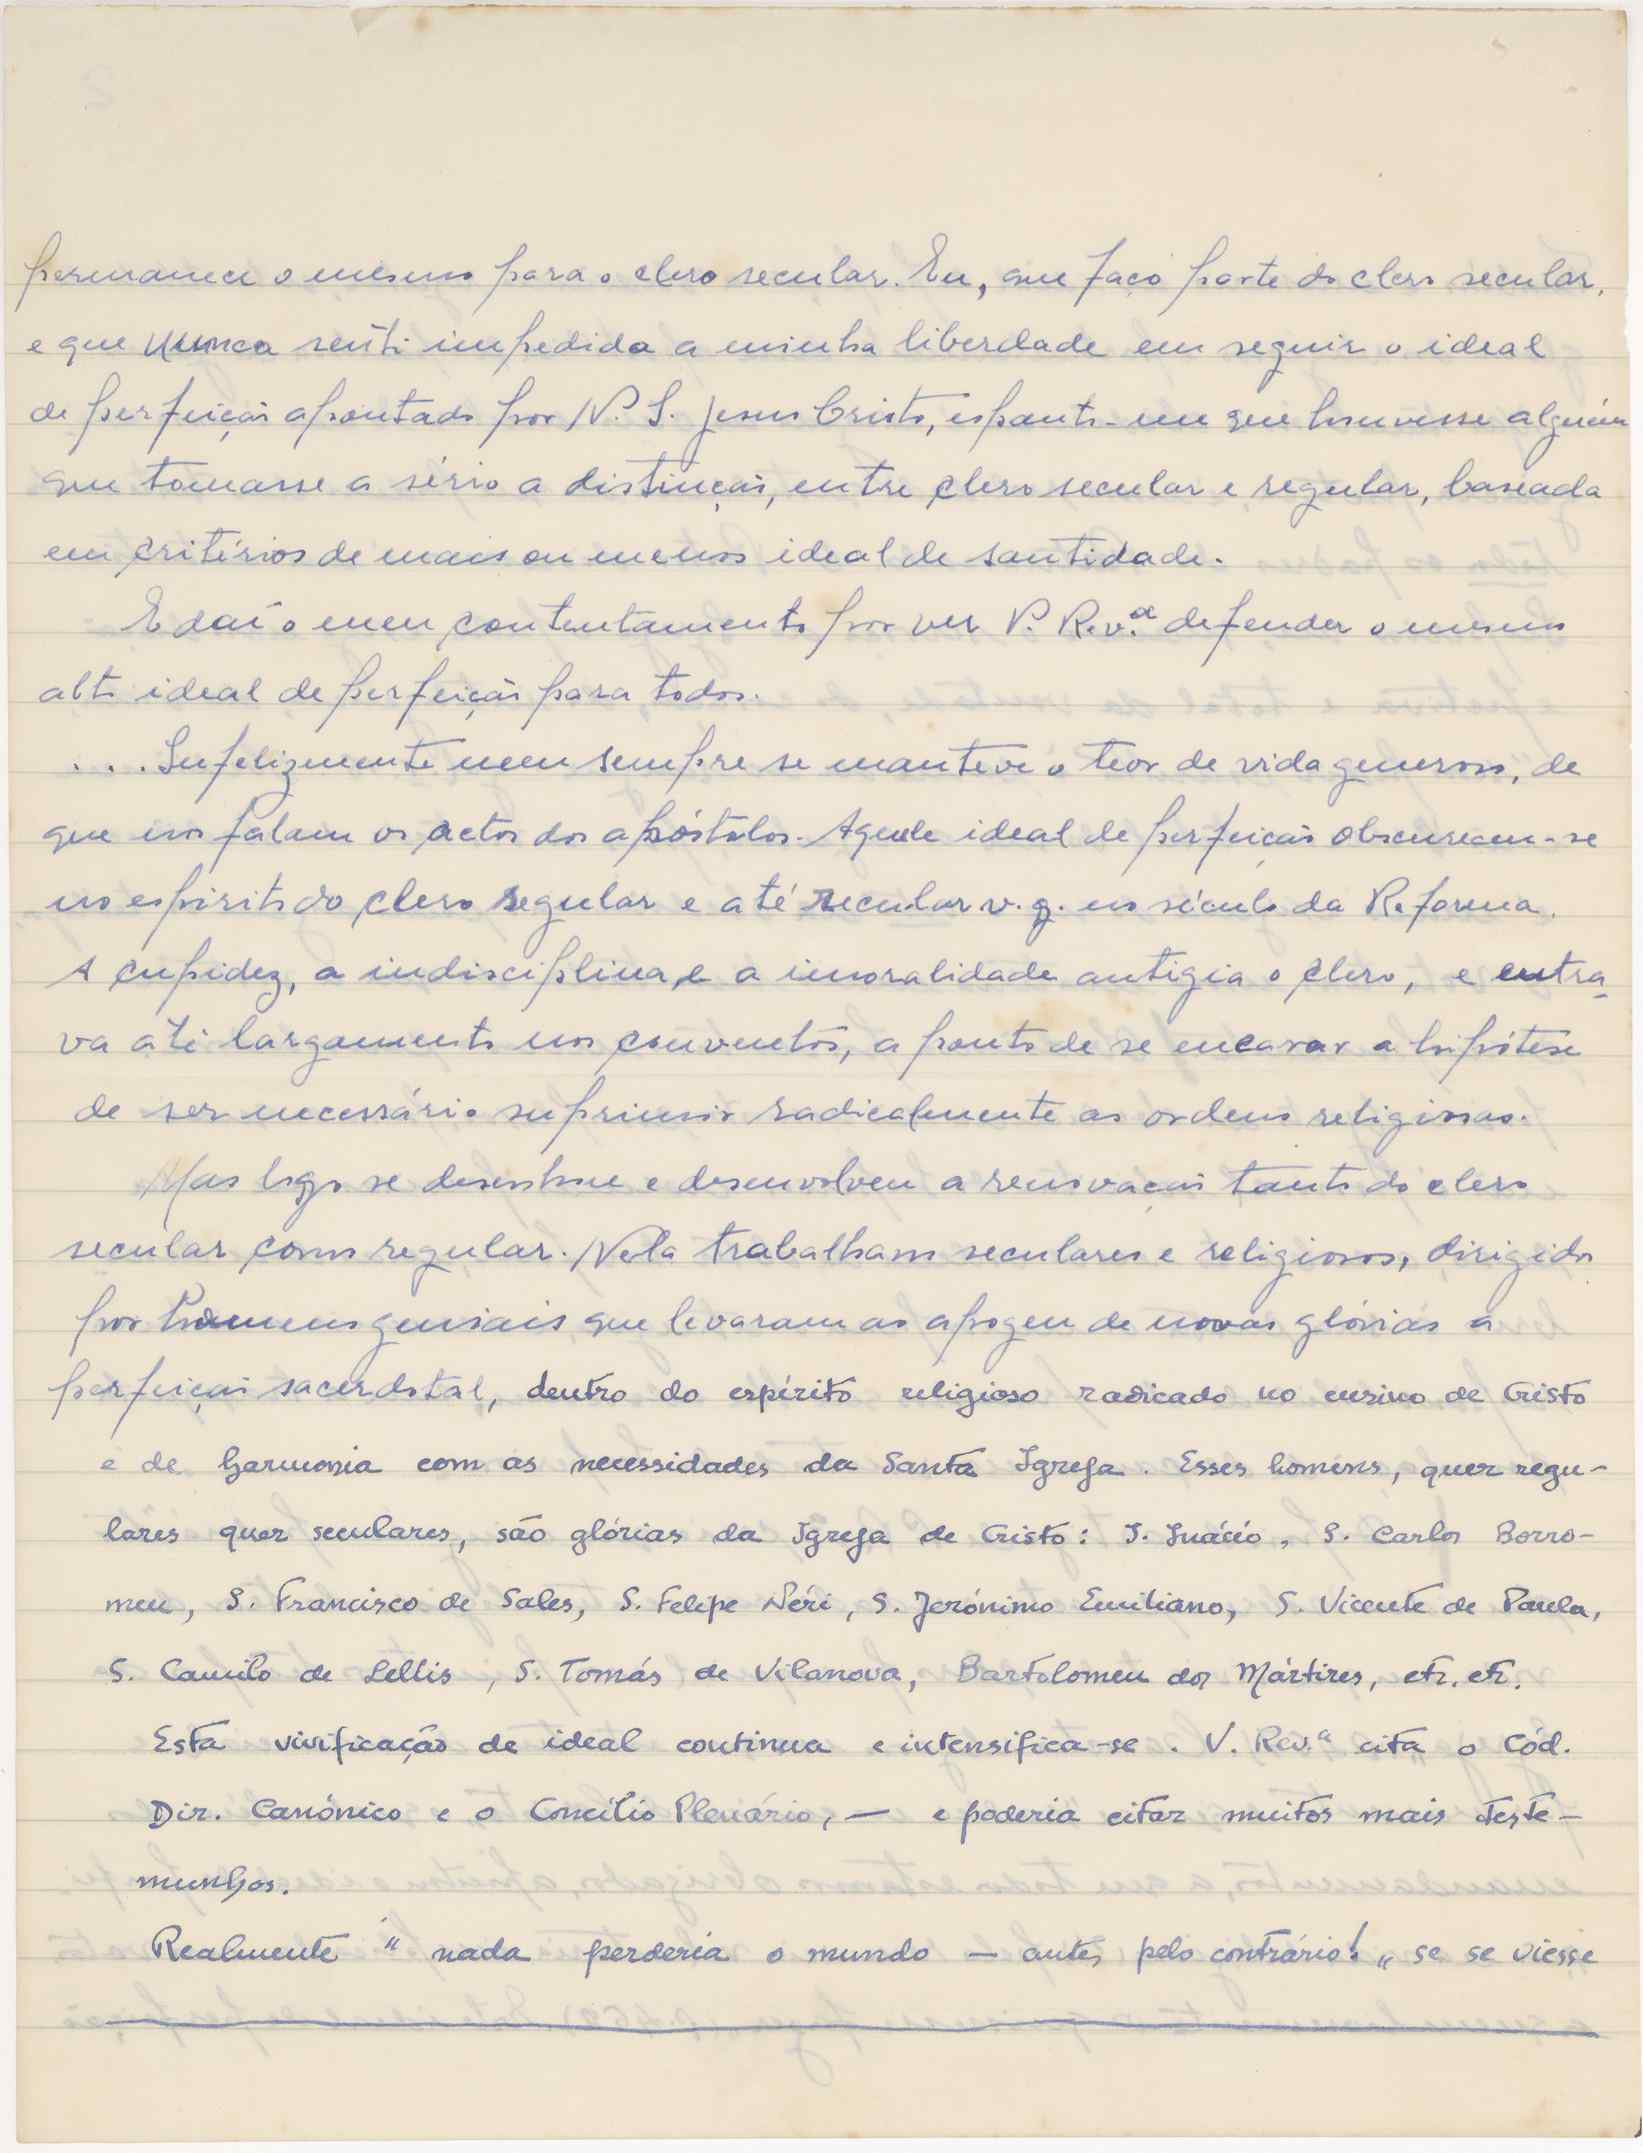 permanece o mesmo para o clero secular. Eu, que faço parte do clero secular,
e que nunca senti impedida a minha liberdade em seguir o ideal
de perfeição apontado por N. S. Jesus Cristo, espanto-me que houvesse alguém
que tomasse a sério a distinção, entre clero secular e regular, baseada
em critérios de mais ou menos ideal de santidade.
E daí o meu contentamento por ver V. Rev.ª defender o mesmo
alto ideal de perfeição para todos.
... Infelizmente nem sempre se manteve o teor de vida generoso, de
que nos falam os actos dos apóstolos. Aquele ideal de perfeição obscureceu-se
no espírito do clero regular e até secular v. g. no século da Reforma.
A cupidez, a indisciplina, e a imoralidade antigia o clero, e entra-
va até largamente nos conventos, a ponto de se encarar a hipótese
de ser necessário suprimir radicalmente as ordens religiosas.
Mas logo se desenhou e desenvolveu a renovação tanto do clero
secular como regular. Nela trabalham seculares e religiosos, dirigidos
por homens geniais que levaram ao apogeu de novas glórias a
perfeição sacerdotal, dentro do espírito religioso radicado no ensino de Cristo
e de harmonia com as necessidades da Santa Igreja. Esses homens, quer regu-
lares quer seculares, são glórias da Igreja de Cristo: S. Inácio, S. Carlos Borro-
meu, S. Francisco de Sales, S. Felipe Néri, S. Jerónimo Emiliano, S. Vicente de Paula,
S. Camilo de Lellis, S. Tomás de Vilanova, Bartolomeu dos Mártires, etc. etc.
Esta vivificação de ideal continua e intensifica-se. V. Rev.ª cita o Cód.
Dir. Canónico e o Concílio Plenário, — e poderia citar muitos mais teste-
munhos.
Realmente "nada perderia o mundo — antes pelo contrário!" se se viesse